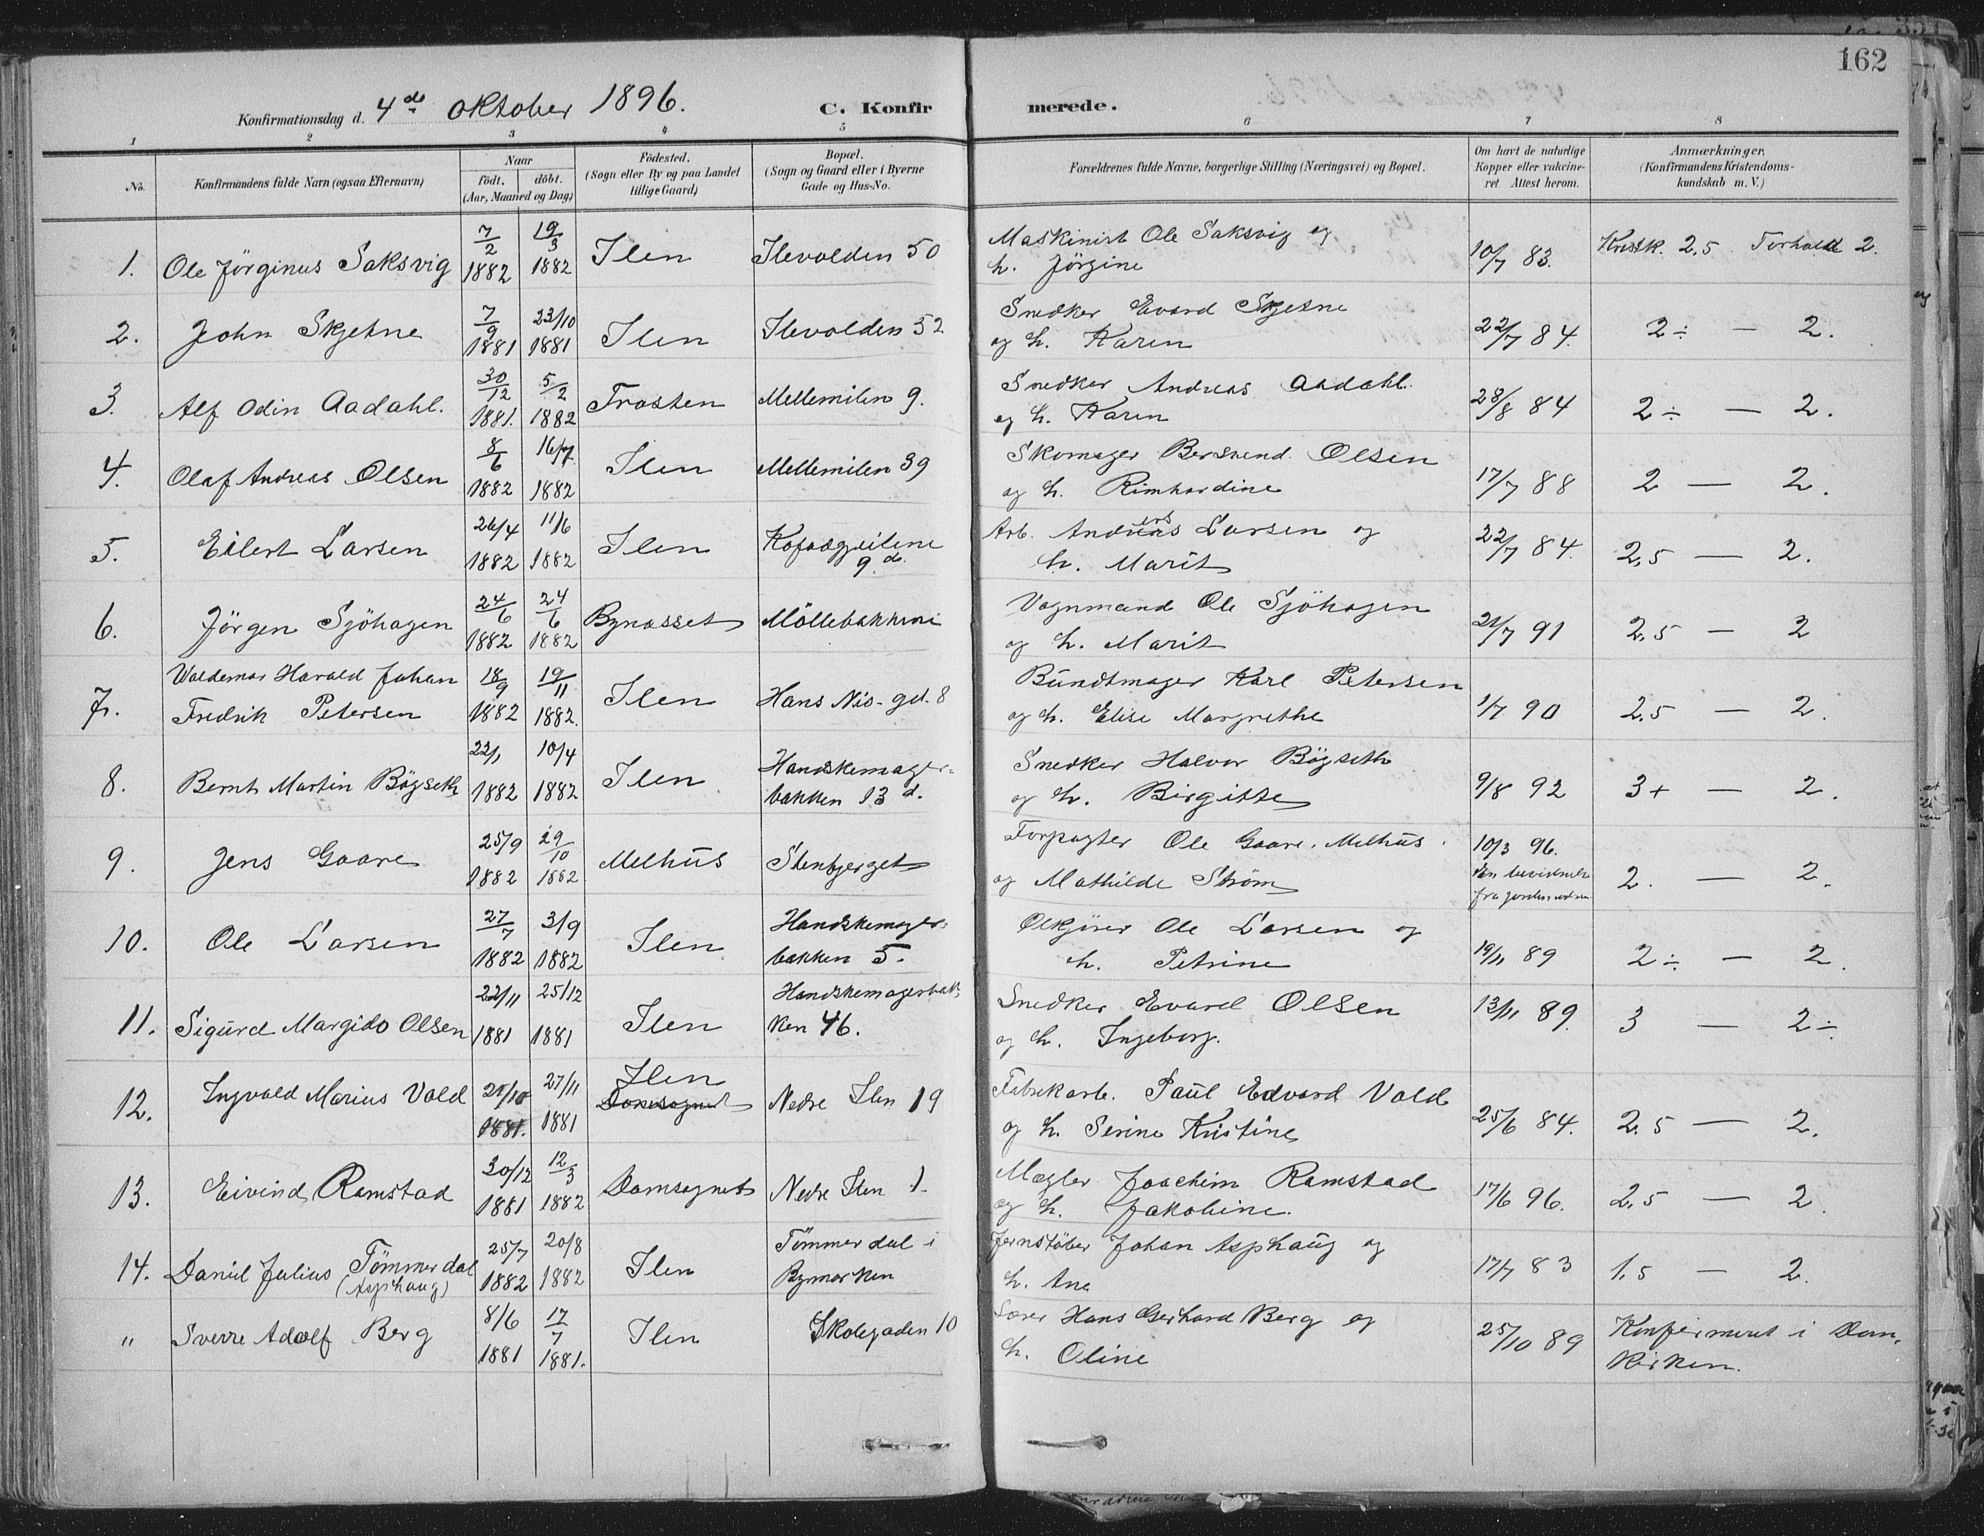 162
Konfirmationsdag d. 4de Oktober 1896. C. Konfirmerede.
1 2 3 4 5 6 7 8
No. Konfirmandens fulde Navn (ogsaa Efternavn) Naar födt. döbt. (Aar, Maaned og Dag) Födested. (Sogn eller By og paa Landet tillige Gaard) Bopæl. (Sogn og Gaard eller i Byerne Gade og Hus-No. Forældrenes fulde Navne, borgerlige Stilling (Næringsvei) og Bopæl. Om havt de naturlige Kopper eller vaccineret Attest herom. Anmærkninger, (Konfirmandens Kristendomskundskab m. V.)
1. Ole Jörginus Saksvig 7/2 1882 19/3 1882 Ilen Ilevolden 50 Maskinist Ole Saksvig og h. Jörgine 10/7 83. Kridsk. 2,5 Forhold 2.
2. John Skjetne 7/9 1881 23/10 1881 Ilen Ilevolden 52 Snedker Evard Skjetne og h. Karen 22/7 84. 2÷ — 2.
3. Alf Odin Aadahl. 30/12 1881. 5/2 1882 Frosten Mellemilen 9. Snedker Andreas Aadahl. og h. Karen 28/8 84 2÷ — 2.
4. Olaf Andreas Olsen 8/6 1882 16/7 1882 Ilen Mellemilen 39 Skomager Bersvend Olsen og h. Rimhardine 17/7 88 2 — 2.
5. Eilert Larsen 26/4 1882 11/6 1882 Ilen 9 d. Arb. Larsen og h. Marit 22/7 84. 2,5 — 2.
6. Jörgen Sjöhagen 24/6 1882 24/6 1882 Bynæsset Möllebakken Vognmand Ole Sjöhagen og h. Marit 21/7 91 2,5 — 2
7. Waldemar Harald Johan Fredrik Petersen 18/9 1882 19/11 1882. Ilen Hans Nis- gd. 8 Bundtmager Karl Petersen og h. Elise Margrethe 1/7 90 2,5 — 2.
8. Bernt Martin Bögseth 22/1 1882 10/4 1882 Ilen Handskemagerbakken 13 d. Snedker Halvor Bögseth og h. Birgitte 9/8 92 3+ — 2.
9. Jens Gaare 25/9 1882 29/10 1882 Melhus Stenbjerget Forpagter Ole Gaare, Melhus. og Mathilde Ström 10/3 96. 2. — 2.
10. Ole Larsen 27/7 1882 3/9 1882 Ilen Handskemagerbakken 5. Ölkjörer Ole Larsen og h. Petrine 19/11 89 2÷ — 2.
11. Sigurd Margido Olsen 22/11 1881 25/12 1881 Ilen Handskemagerbakken 46. Snedker Evard Olsen og h. Ingeborg. 13/11 89. 3 — 2÷
12. Ingvald Marius Vold 25/10 1881. 27/11 1881 Ilen Domsognet Nedre Ilen 19 Fabrikarb. Paul Edvard Vold og h. Serine Kristine 25/6 84. 2,5 — 2.
13. Eivind Ramstad 30/12 1881 12/3 1882 Domsognet Nedre Ilen 1. Mægler Joachim Ramstad og h. Jakobine. 17/6 96. 2,5 — 2.
14. Daniel Julius Tömmerdal (Asphaug) 25/7 1882 20/8 1882 Ilen Tömmerdal i Bymarken Jernstøber Johan Asphaug og h. Ane 17/7 83 1,5 — 2.
" Sverre Adolf Berg 8/6 1881 17/7 1881. Ilen Skolegaden 10 Hans Gerhard Berg og h. Oline 25/10 89 Konfirmeret i Domkirken.